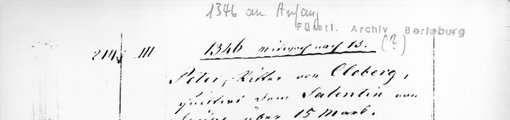 1346 am Anfang
Fürstl. Archiv Berleburg
(?)
214. III 1346 mittwoch nach 13.
Peter, Ritter von Cleberg,
quittirt dem Salentin von
über 15 Mark.